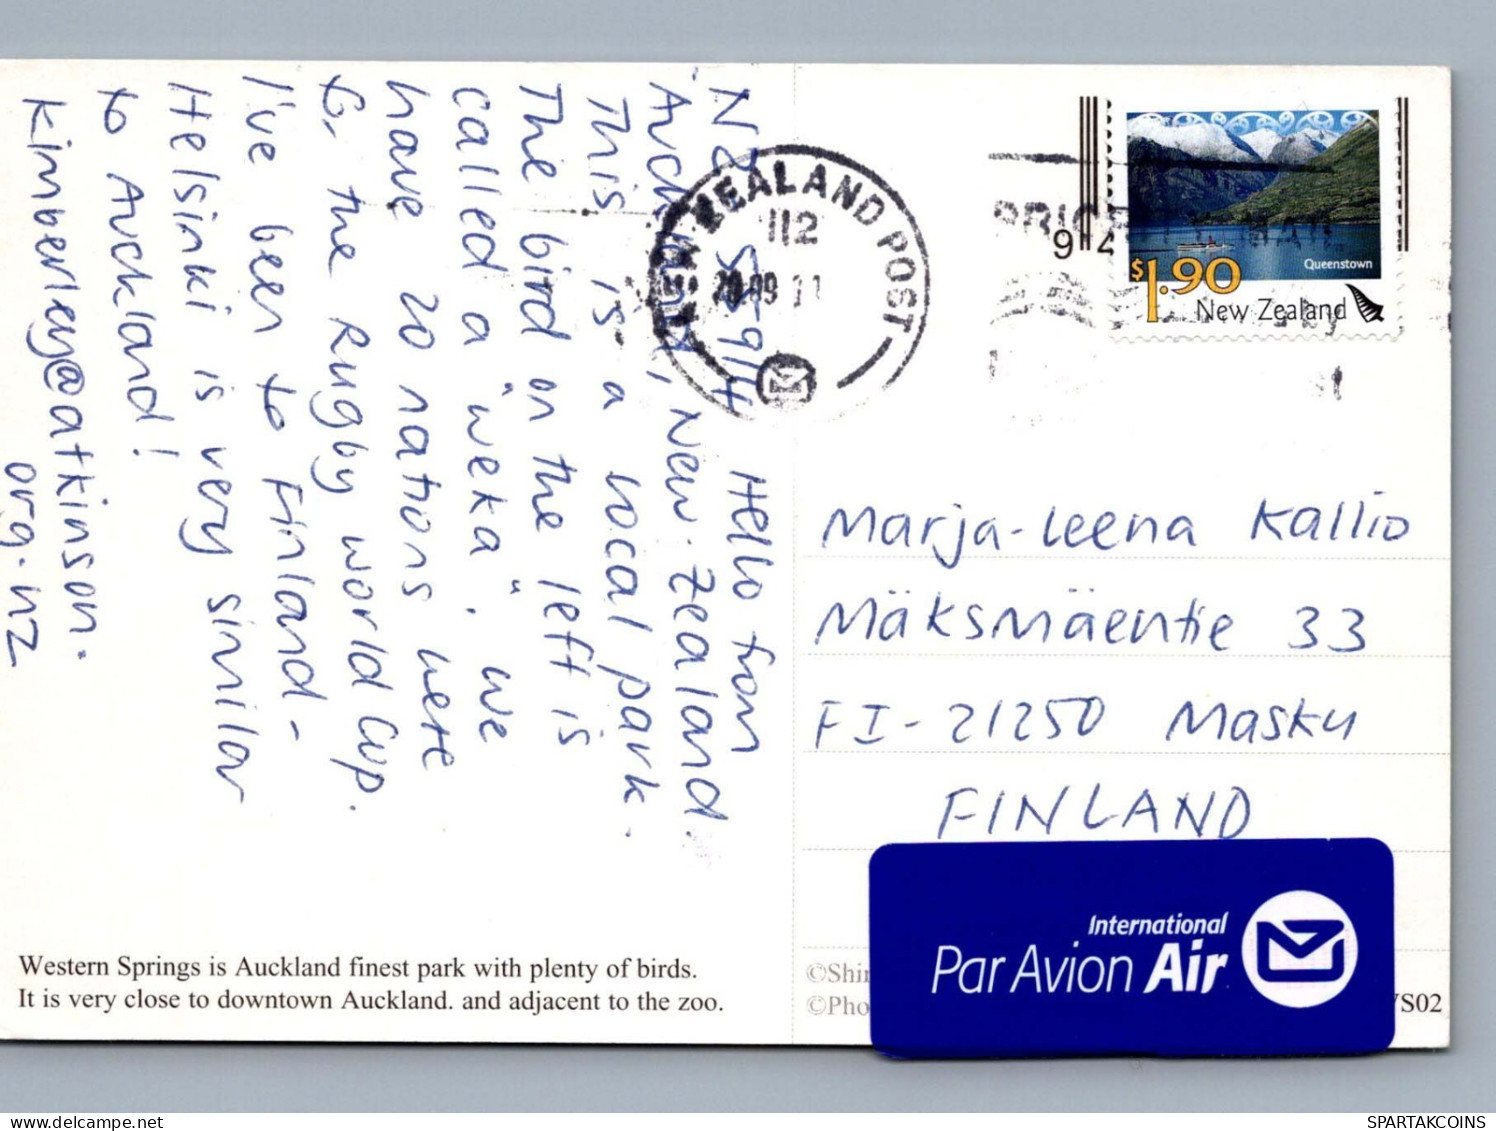 NZ 5914 Hello from
Auckland, New Zealand.
This is a local park.
The bird on the left is
called a "weka". We
have 20 nations here
for the Rugby World Cup.
I've been to Finland -
Helsinki is very similar
to Auckland!
kimberley@atkinson.
org.nz
Western Springs is Auckland finest park with plenty of birds.
It is very close to downtown Auckland. and adjacent to the zoo.
NEW ZEALAND POST
112
20 09 11
9 4
$1.90
Queenstown
New Zealand
Marja-Leena Kallio
Mäksmäentie 33
FI-21250 Masku
FINLAND
International
Par Avion Air
©Shir
©Pho
S02
SPARTAKCOINS